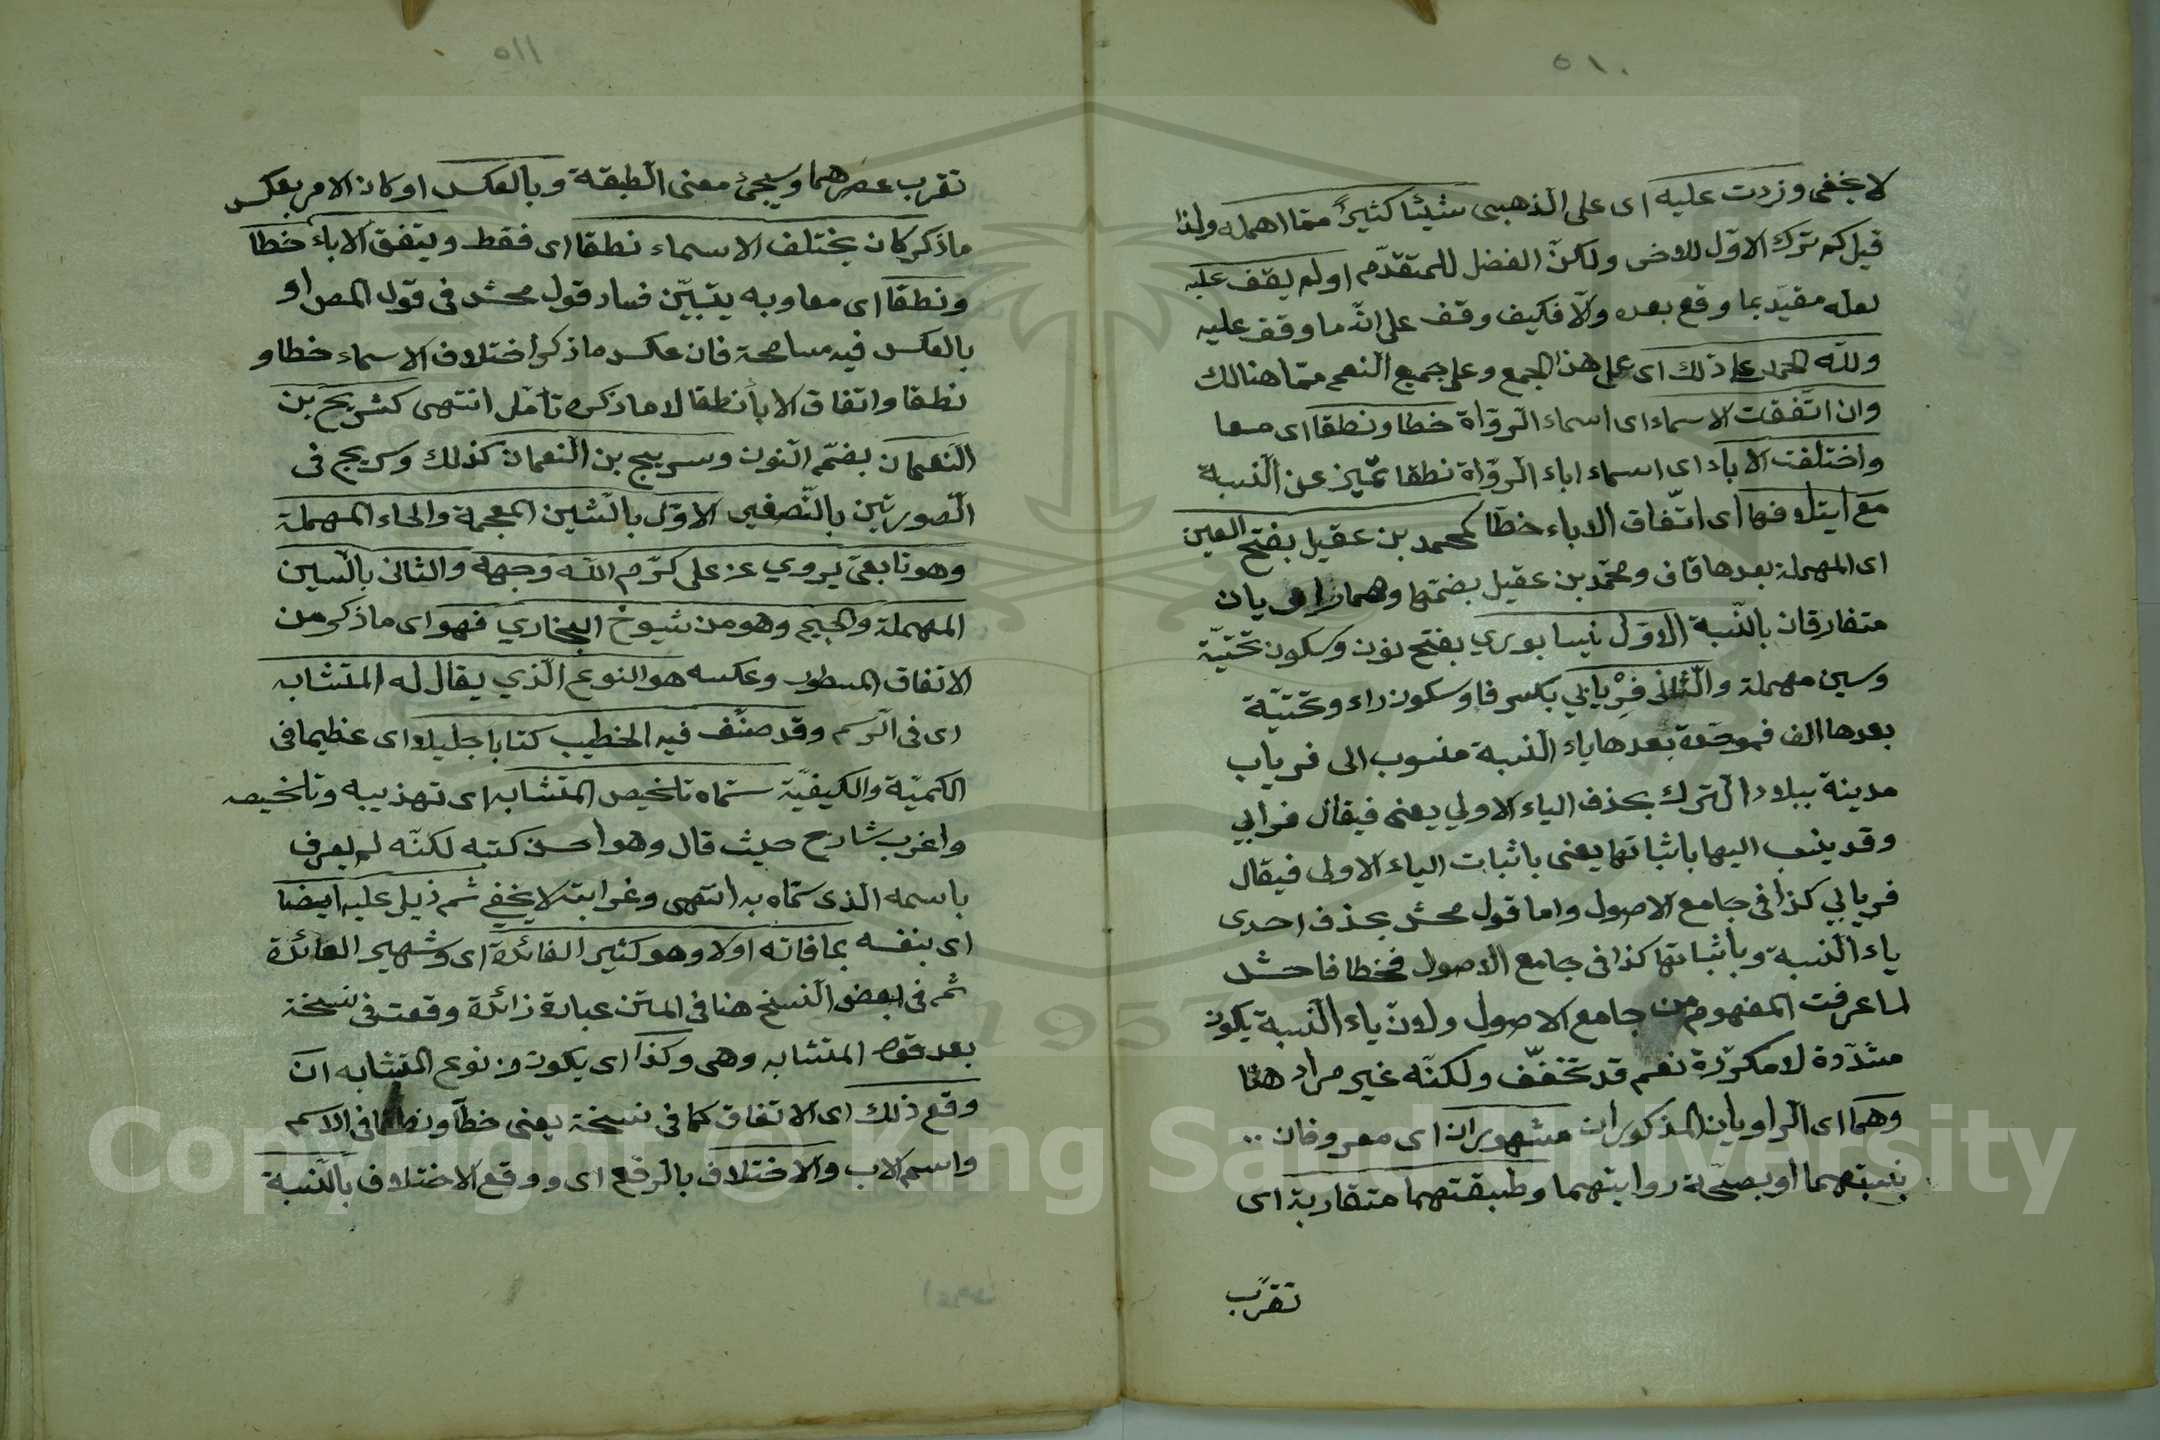 ٥١٠
لا يخفى وزدت عليه اى على الذهبى شيئا كثيرا مما اهمله ولذا
قيل كم ترك الاول للاخر ولكن الفضل للمتقدم او لم يقف عليه
لعله مقيد بما وقع بعده والا فكيف وقف على انه ما وقف عليه
ولله الحمد على ذلك اى على هذا الجمع وعلى جميع النعم مما هنالك
وان اتفقت الاسماء اى اسماء الرواة خطا ونطقا اى معا
واختلفت الاباء اى اسماء اباء الرواة نطقا تميز عن النسبة
مع ايتلافها اى اتفاق الاباء خطا كمحمد بن عقيل بفتح العين
اى المهملة بعدها قاف ومحمد بن عقيل بضمها وهما راويان
متفارقان بالنسبة الاول نيسابوري بفتح نون وسكون تحتية
وسين مهملة والثانى فِرْيابي بكسر فا وسكون راء وتحتية
بعدها الف فموحدة بعدها ياء النسبة منسوب الى فرياب
مدينة ببلاد الترك بحذف الياء الاولي يعنى فيقال فرابي
وقد ينسب اليها باثباتها يعنى باثبات الياء الاولى فيقال
فريابي كذا فى جامع الاصول واما قول محش بحذف احدى
ياء النسبة وباثباتها كذا فى جامع الاصول فخطا فاحش
لما عرفت المفهوم من جامع الاصول ولان ياء النسبة يكون
مشددة لا مكررة نعم قد تخفف ولكنه غير مراد هنا
وهما اى الراويان المذكوران مشهوران اى معروفان ..
بنسبتهما او بصحة روايتهما وطبقتهما متقاربة اى
تقرب
٥١١
تقرب عصرهما وسيجئ معنى الطبقة وبالعكس او كان الامر بعكس
ما ذكر كان يختلف الاسماء نطقا اى فقط ويتفق الاباء خطا
ونطقا اى معا وبه يتبين فساد قول محش فى قول المص او
بالعكس فيه مسامحة فان عكس ما ذكر اختلاف الاسماء خطا و
نطقا واتفاق الابا نطقا لا ما ذكره تأمل انتهى كشريح بن
النعمان بضم النون وسريج بن النعمان كذلك وسريج فى
الصورتين بالتصغير الاول بالشين المعجمة والحاء المهملة
وهو تابعى يروي عن على كرم الله وجهه والثانى بالسين
المهملة والجيم وهو من شيوخ البخاري فهو اى ما ذكر من
الاتفاق المسطور وعكسه هو النوع الذي يقال له المتشابه
اى فى الرسم وقد صنف فيه الخطيب كتابا جليلا اى عظيما فى
الكمية والكيفية سماه تلخيص المتشابه اى تهذيبه وتلخيصه
واغرب شارح حيث قال وهو احسن كتبه لكنه لم يعرف
باسمه الذى سماه به انتهى وغرابته لا يخفي ثم ذيل عليه ايضا
اى بنفسه بما فاته اولا وهو كثير الفائدة اى وشهير العائدة
ثم فى بعض النسخ هنا فى المتن عبارة زائدة وقعت فى نسخة
بعد قوله المتشابه وهى وكذا اى يكون من نوع المتشابه ان
وقع ذلك اى الاتفاق كما فى نسخة يعنى خطا ونطقا فى الاسم
واسم الاب والاختلاف بالرفع اى ووقع الاختلاف بالنسبة
1957
Copyright © King Saud University